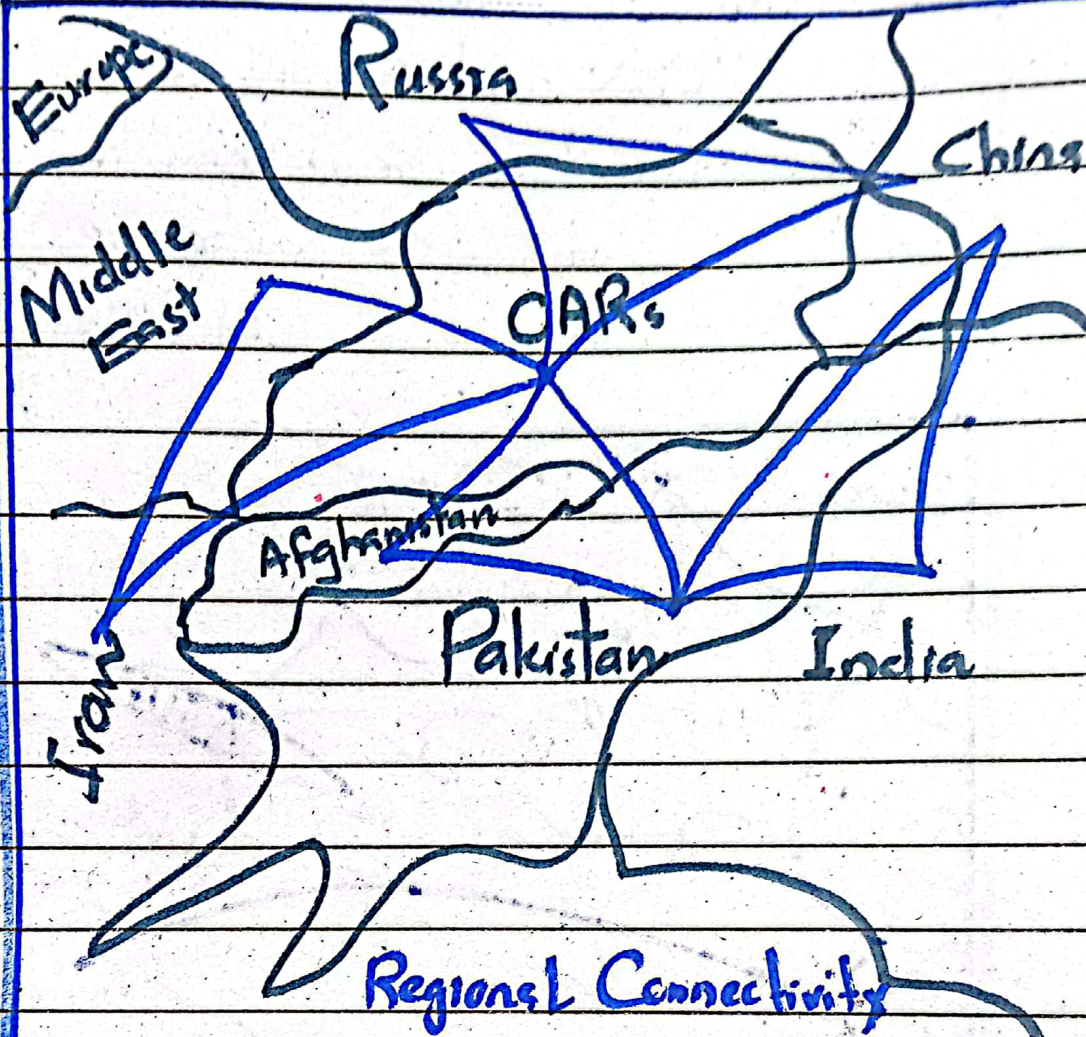 Europe
Russia
China
Middle
East
CARs
Afghanistan
Pakistan
India
Iran
Regional Connectivity